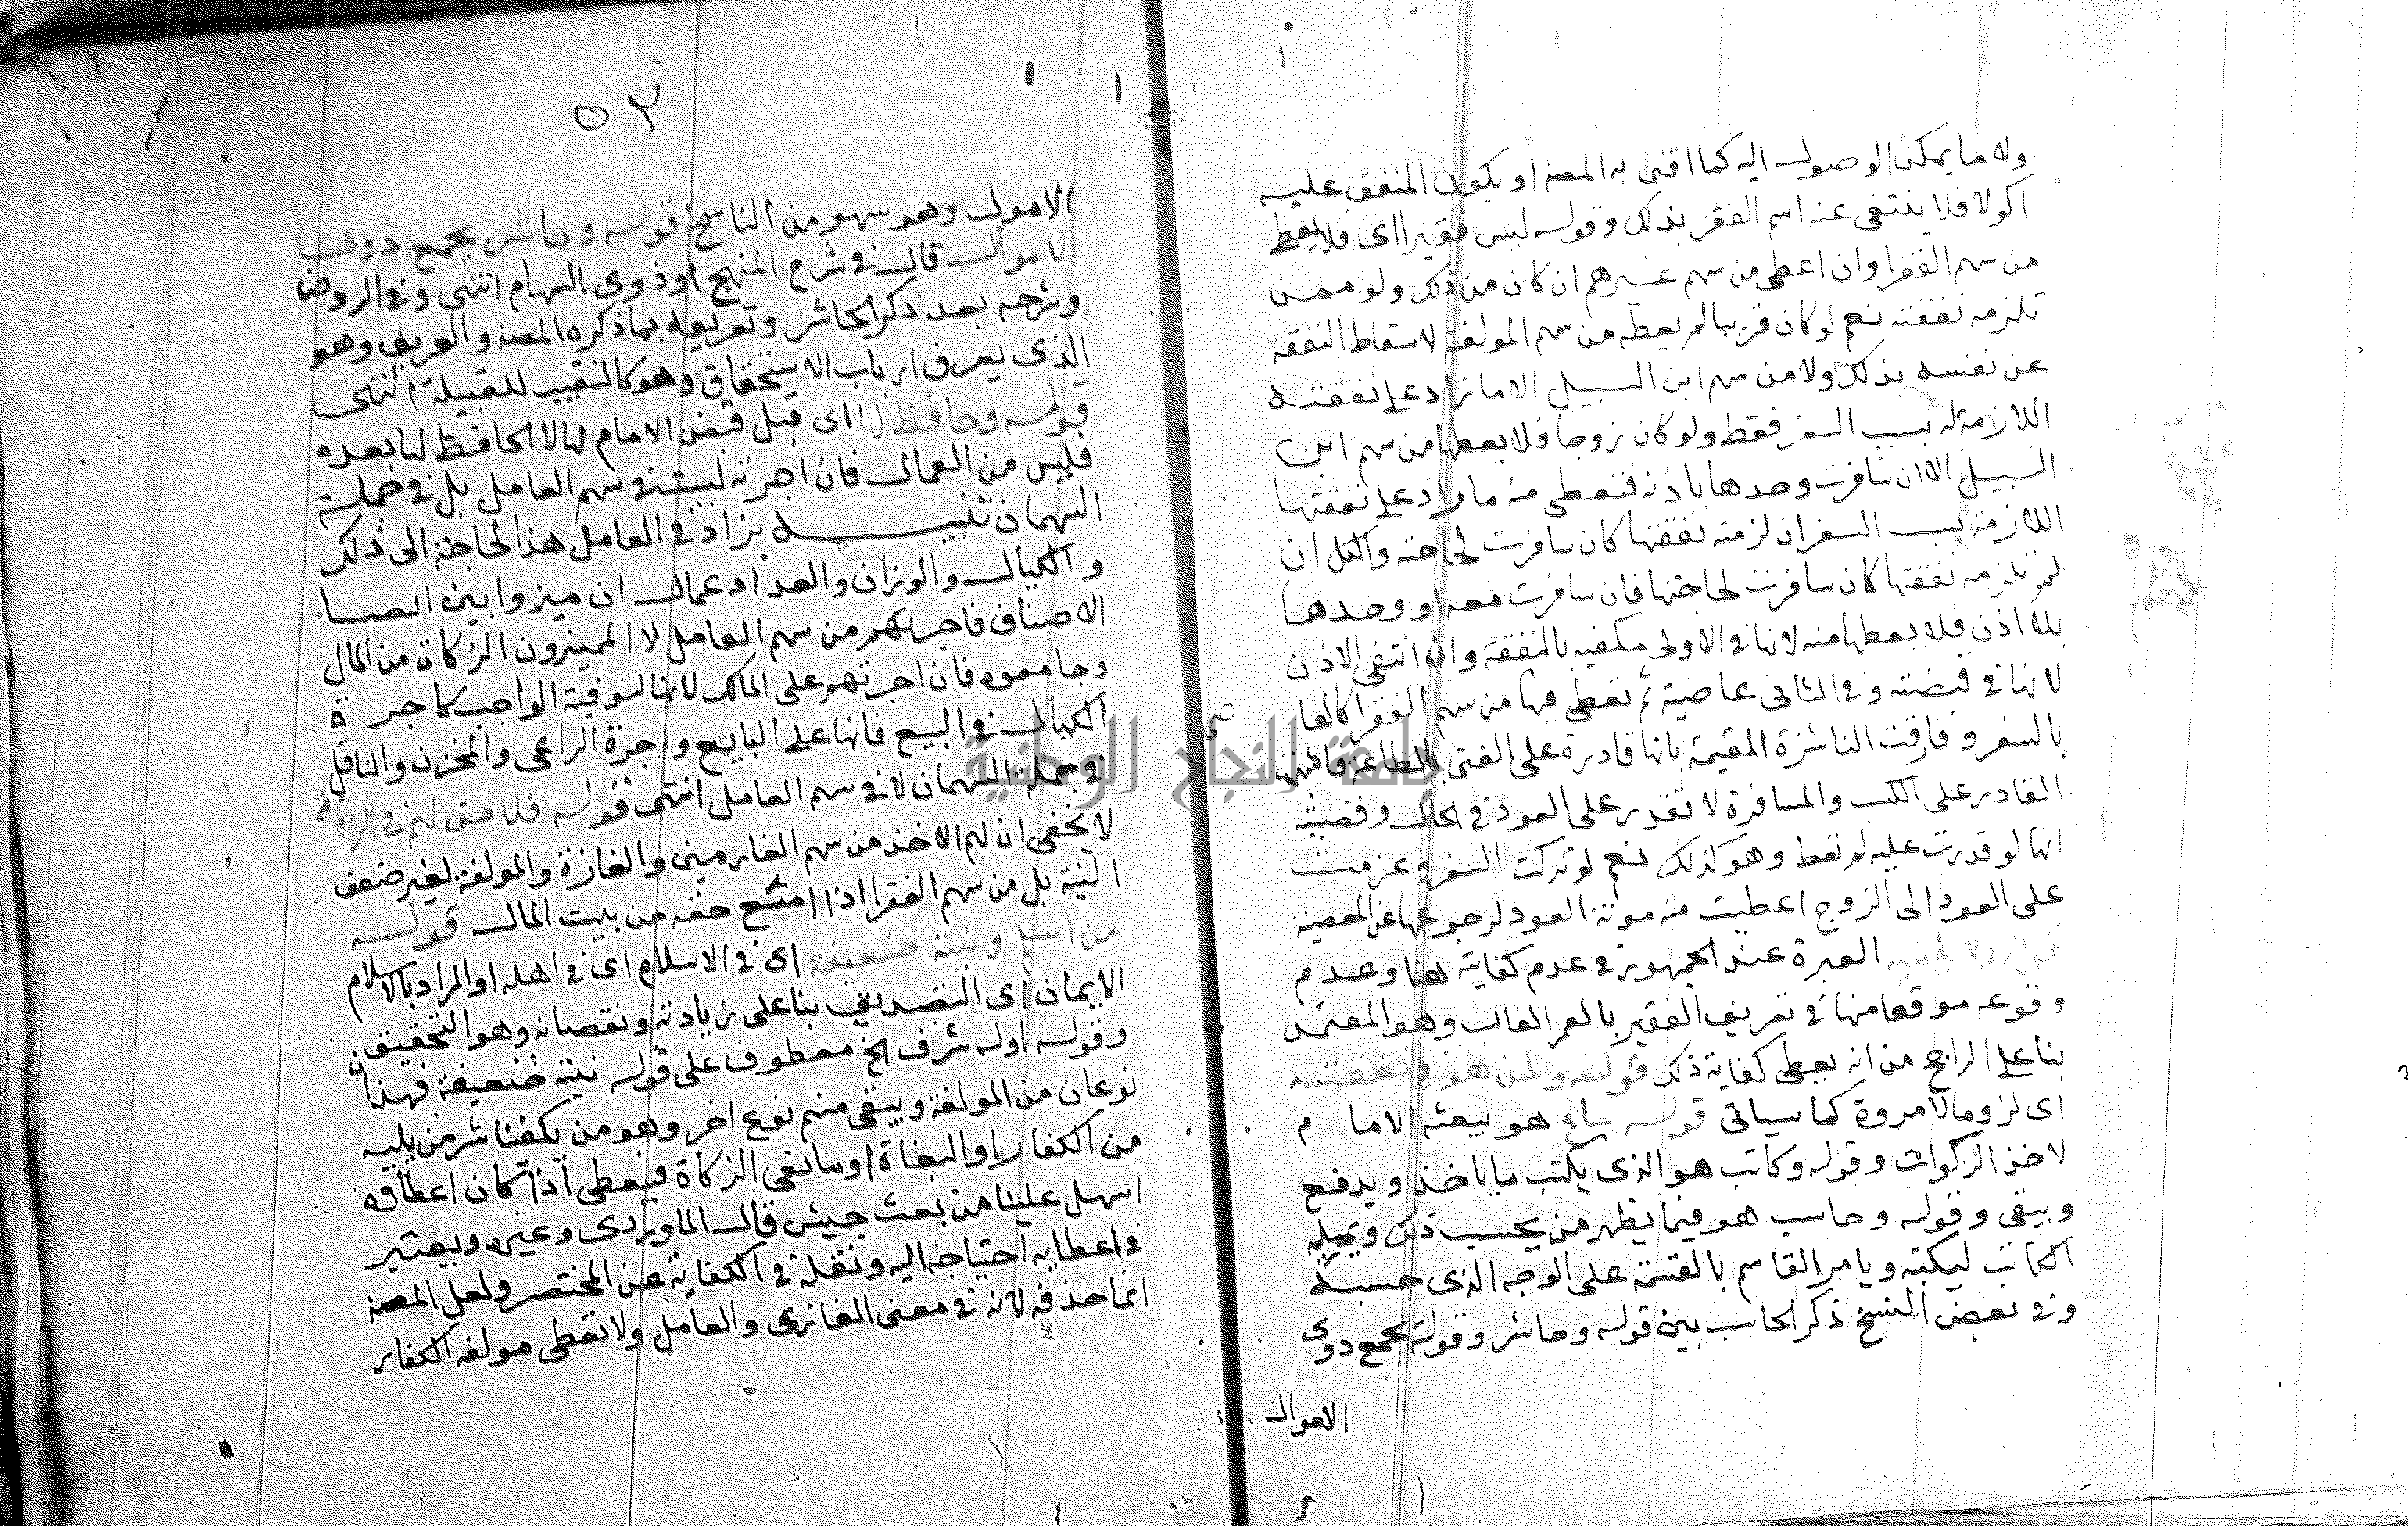 ولا ما يمكن الوصول اليه كما افتى به المصنف او يكون المنفق عليه
اكولا فلا ينتفى عنه اسم الفقر بذلك وقوله ليس فقيرا اى فلا يعطى
من سهم الفقرا وان اعطى من سهم غيرهم ان كان من ذلك ولو ممن
تلزمه نفقته نعم لو كان قريبا لم يعطه من سهم المولفة لاسقاط النفقة
عن نفسه بذلك ولا من سهم ابن السبيل الا ما زاد على نفقته
اللازمة له بسبب السفر فقط ولو كان زوجا فلا يعطها من سهم ابن
السبيل الا ان سافرت وحدها باذنه فتعطى منه ما زاد على نفقتها
اللازمة بسبب السفر ان لزمته نفقتها كان سافرت لحاجته والكل ان
لم تلزمه نفقتها كان سافرت لحاجتها فان سافرت معه او وحدها
بلا اذن فلا يعطها منه لانها فى الاولى مكفيه بالنفقة وان انتفى الاذن
لانها فى قبضته وفى الثانى عاصية ثم تعطى فيها من سهم الفقرا
بالسفر وفارقت الناشزة المقيمة بانها قادرة على الغنى بالطاعة فاشبهت
القادر على الكسب والمسافرة لا تقدر على العود فى الحال وقضيته
انها لو قدرت عليه لم تعط وهو كذلك نعم لو تركت السفر وعزمت
على العود الى الزوج اعطيت منه مونة العود لرجوعها عن المعصية
قوله ولا يكفيه العبرة عند الجمهور فى عدم كفايته هنا وعدم
وقوعه موقعا منها فى تعريف الفقير بالعمر الغالب وهو المعتمد
بنا على الراجح من انه يعطى كفاية ذلك قوله ولمن هو فى نفقته
اى لزوما لا مروة كما سياتى قوله ساع هو يبعثه الامام
لاخذ الزكوات وقوله وكاتب هو الذى يكتب ما ياخذ ويدفع
ويبقى وقوله وحاسب هو فيما يظهر من يحسب ذلك ويمليه
الكاتب ليكتبه ويامر القاسم بالقسمة على الوجه الذى حسبه
وفى بعض النسخ ذكر الحاسب بين قوله وحاشر وقوله يجمع ذوى
الاموال
٥٢
الاموال وهو سهو من الناسخ قوله وحاشر يجمع ذوى
الاموال قال فى شرح المنهج او ذوى السهام انتهى وفى الروض
وشرحه بعد ذكر الحاشر وتعريفه بما ذكره المصنف والعريف وهو
الذى يعرف ارباب الاستحقاق وهو كالنقيب للقبيلة انتهى
قوله وحافظ لها اى قبل قبض الامام لها لا الحافظ لها بعده
فليس من العمال فان اجرته ليست فى سهم العامل بل فى جملة
السهمان تنبيه يزاد فى العامل هذا لحاجته الى ذلك
والكيال والوزان والعداد عمال ان ميزوا بين انصبا
الاصناف فاجرتهم من سهم العامل لا المميزون الزكاة من المال
وجامعوه فان اجرتهم على المالك لانها لتوفية الواجب كاجرة
الكيال فى البيع فانها على البايع واجرة الراعى والمخزن والناقل
فى جملة السهمان لا فى سهم العامل انتهى قوله فلا حق لهم فى الزكاة
لا يخفى ان لهم الاخذ من سهم الغارمين والغازة والمولفة لغير ضعف
النية بل من سهم الفقرا اذا امتنع حقه من بيت المال قوله
من اسلم ونيته ضعيفة اى فى الاسلام اى فى اهله او المراد بالاسلام
الايمان اى التصديق بنا على زيادته ونقصانه وهو التحقيق
وقوله او له شرف الخ معطوف على قوله نيته ضعيفة فهذان
نوعان من المولفة ويبقى منهم نوع اخر وهو من يكفنا شر من يليه
من الكفار او البغاة او مانعى الزكاة فيعطى اذا كان اعطاوه
اسهل علينا من بعث جيش قال الماوردى وغيره ويعتبر
فى اعطايه احتياجه اليه ونقله فى الكفاية عن المختصر ولعل المصنف
انما حذفه لانه فى معنى الغازى والعامل ولا تعطى مولفه الكفار
جامعة النجاح الوطنية